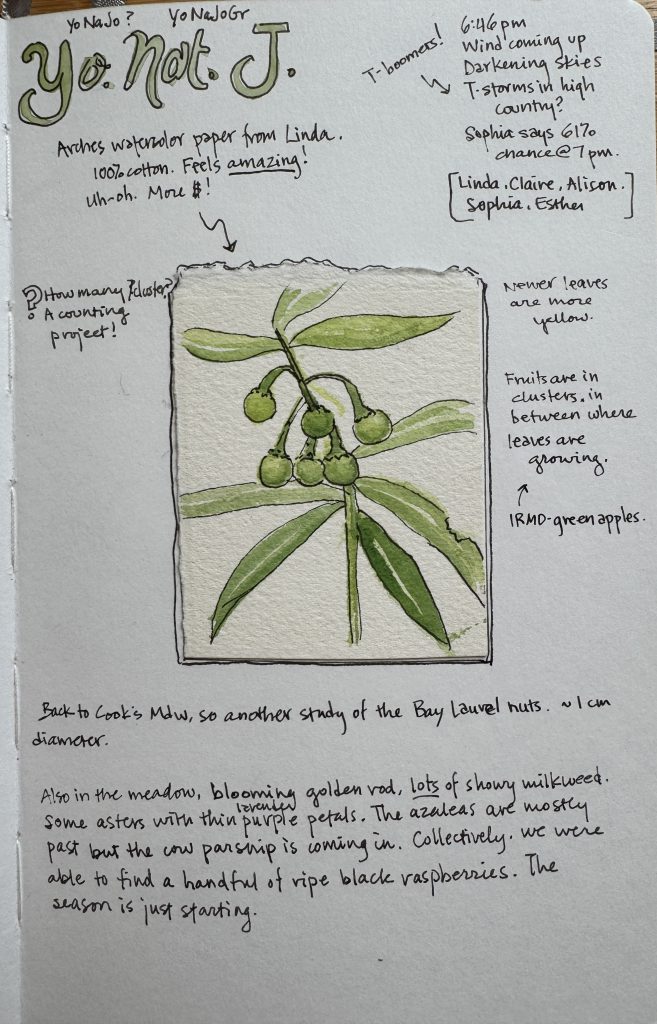 YoNaJo?
YoNaJoGr
Yo. Nat. J.
Arches watercolor paper from Linda.
100% cotton. Feels amazing!
Uh-oh. More $!
T-boomers!
6:46pm
Wind coming up
Darkening skies
T-storms in high
country?
Sophia says 61%
chance @ 7pm.
[Linda. Claire, Alison.
Sophia. Esther]
? How many / cluster?
A counting
project!
Newer leaves
are more
yellow.
Fruits are in
clusters. in
between where
leaves are
growing.
IRMD-green apples.
Back to Cook's Mdw, so another study of the Bay Laurel nuts. ~1 cm
diameter.
Also in the meadow, blooming golden rod, lots of showy milkweed.
Some asters with thin lavender purple petals. The azaleas are mostly
past but the cow parsnip is coming in. Collectively. we were
able to find a handful of ripe black raspberries. The
season is just starting.